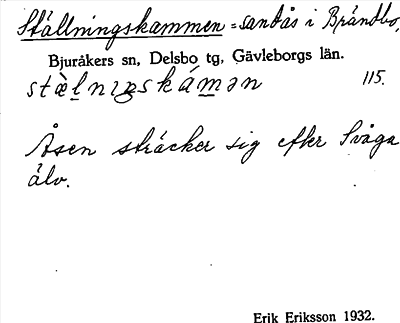 Ställningskammen = sandås i Brändbo,
Bjuråkers sn, Delsbo tg, Gävleborgs län.
stɛ̀lnıŋskámən 115.
Åsen sträcker sig efter Svåga
älv.
Erik Eriksson 1932.